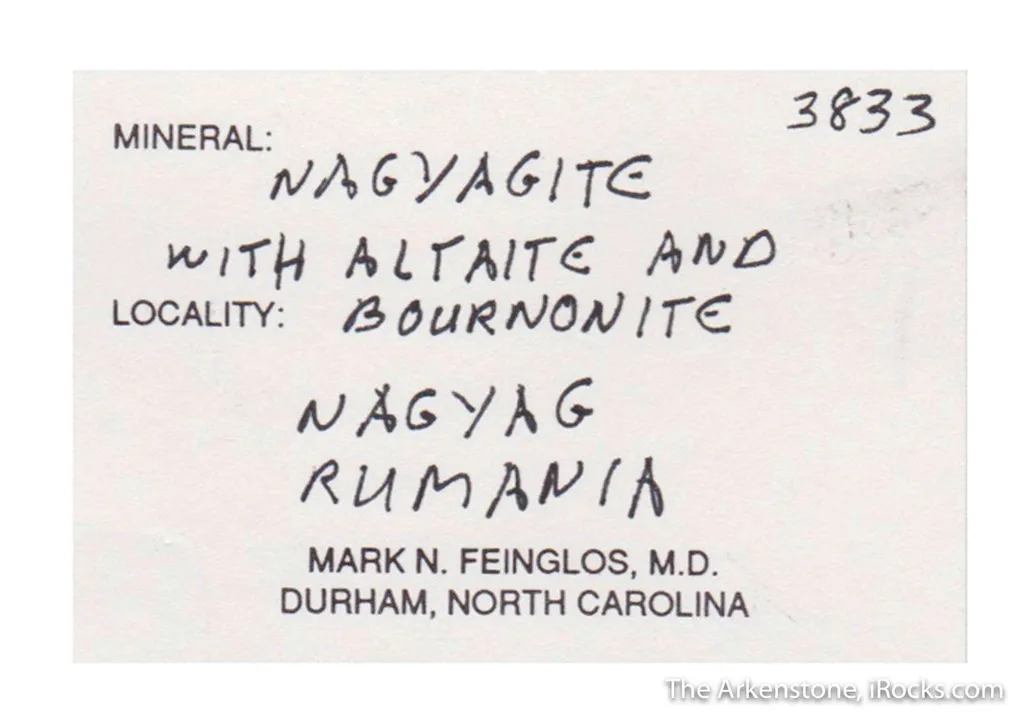 3833
MINERAL:
NAGYAGITE
WITH ALTAITE AND
LOCALITY: BOURNONITE
NAGYAG
RUMANIA
MARK N. FEINGLOS, M.D.
DURHAM, NORTH CAROLINA
The Arkenstone, iRocks.com